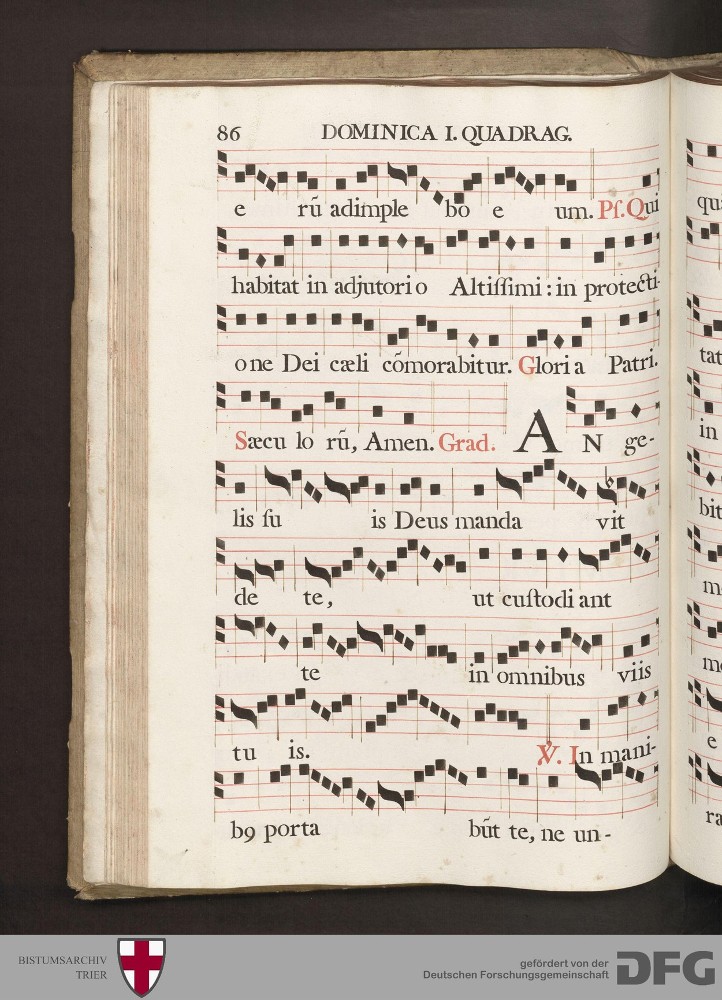 86 DOMINICA I. QUADRAG.
e rū adimple bo e um. Pſ. Qui
habitat in adjutorio Altiſſimi: in protecti-
one Dei cæli cōmorabitur. Gloria Patri.
Sæcu lo rū, Amen. Grad. AN ge-
lis ſu is Deus manda vit
de te, ut cuſtodiant
te in omnibus viis
tu is. ℣. In mani-
bꝯ porta būt te, ne un-
qua
tat
in
bit
e
BISTUMSARCHIV
TRIER
gefördert von der
Deutschen Forschungsgemeinschaft
DFG